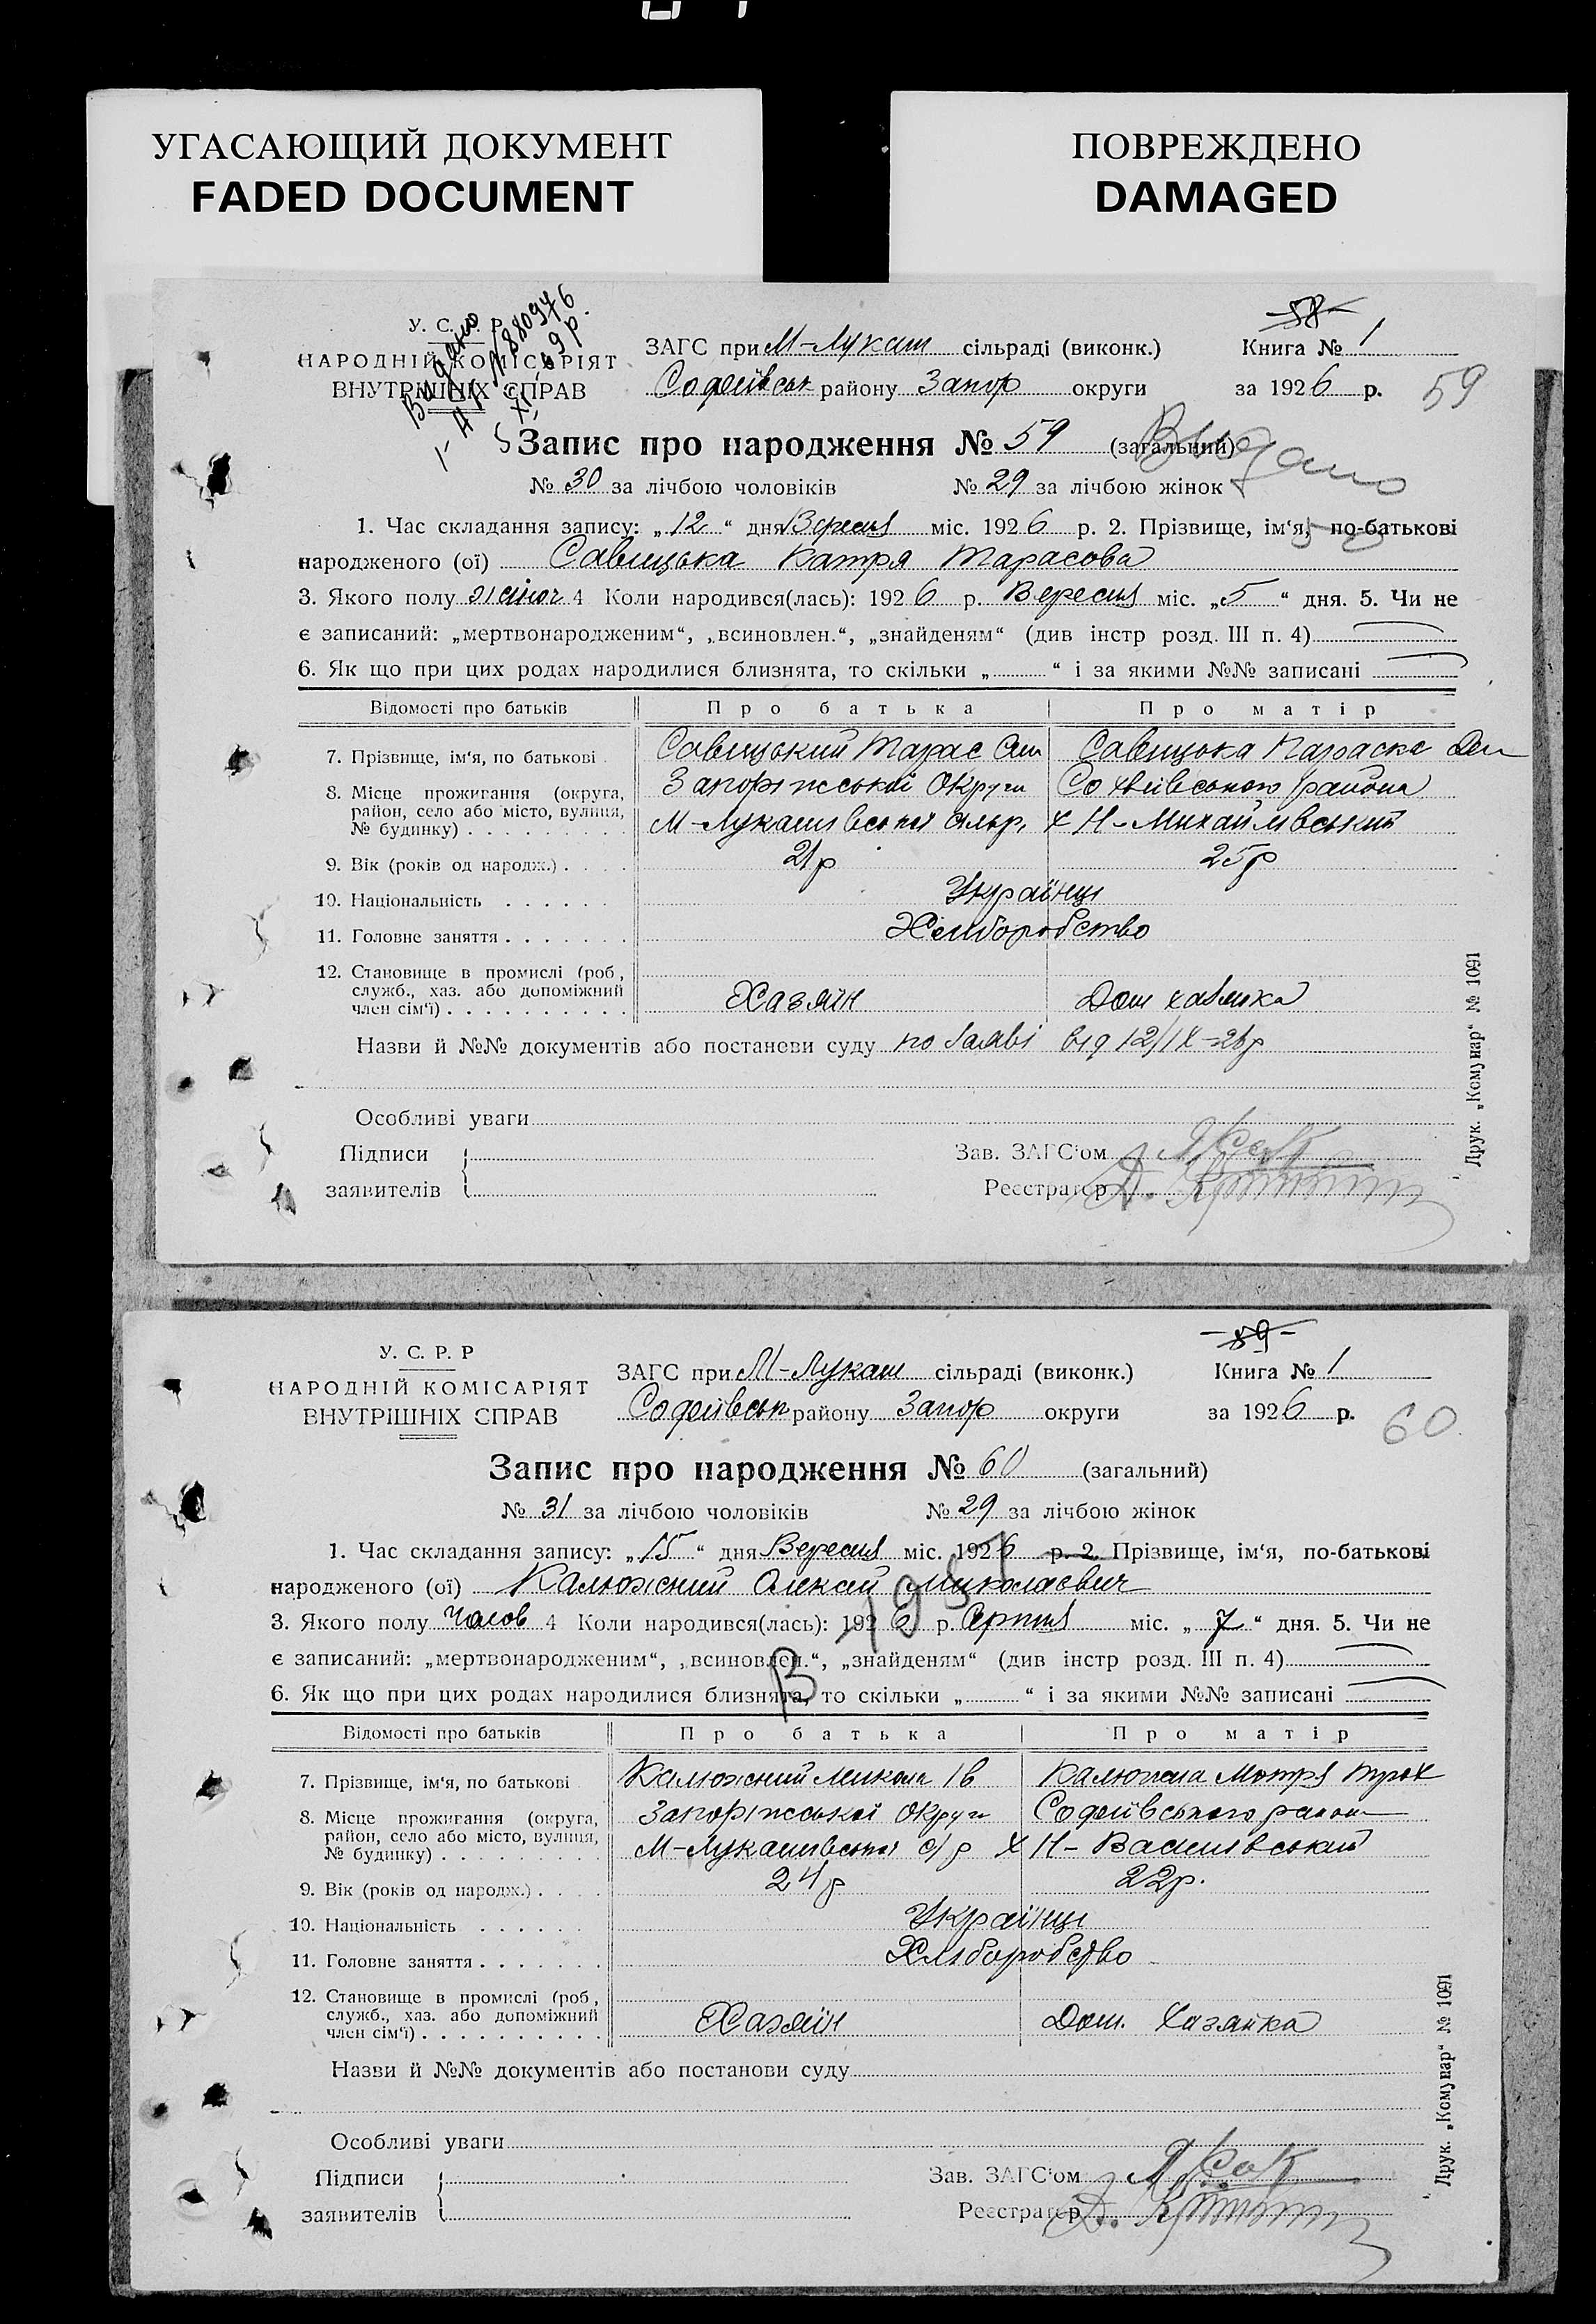 УГАСАЮЩИЙ ДОКУМЕНТ
FADED DOCUMENT
ПОВРЕЖДЕНО
DAMAGED
У. С. Р. Р
НАРОДНІЙ КОМІСАРІЯТ
ВНУТРІШНІХ СПРАВ
Видано
58
ЗАГС при М-Лукаш сільраді (виконк.) Книга № 1
Софиївськ району Запор округи за 1926 р.
59
Запис про народження № 59 (загальний)
Видано
№ 30 за лічбою чоловіків № 29 за лічбою жінок
1. Час складання запису: „12“ дня Вересня міс. 1926 р. 2. Прізвище, ім‘я, по-батькові
народженого (ої) Савицька Катря Тарасова
3. Якого полу жіноч 4 Коли народився(лась): 1926 р. Вересня міс. „5“ дня. 5. Чи не
є записаний: „мертвонародженим“, „всиновлен.“, „знайденям“ (див інстр розд. III п. 4)
6. Як що при цих родах народилися близнята, то скільки „ “ і за якими №№ записані
Відомості про батьків Про батька Про матір
7. Прізвище, ім‘я, по батькові Савицький Тарас Савицька Параска
8. Місце прожигання (округа, район, село або місто, вулиця, № будинку) Запоріжської Округи Софиївського района
М-Лукашівської сільр. х Н-Михайлівський
9. Вік (років од народж.) 21р 25р
10. Національність Українці
11. Головне заняття Хліборобство
12. Становище в промислі (роб, служб., хаз. або допоміжний член сім‘ї) Хазяїн Дом хазяйка
Назви й №№ документів або постанови суду по заяві від 12/IX-26р
Особливі уваги
Підписи Зав. ЗАГС‘ом
заявителів Реєстратор
Друк. „Комунар“ № 1091
59
У. С. Р. Р
НАРОДНІЙ КОМІСАРІЯТ
ВНУТРІШНІХ СПРАВ
ЗАГС при М-Лукаш сільраді (виконк.) Книга № 1
Софиївськ району Запор округи за 1926 р.
60
Запис про народження № 60 (загальний)
№ 31 за лічбою чоловіків № 29 за лічбою жінок
1. Час складання запису: „15“ дня Вересня міс. 1926 р. 2. Прізвище, ім‘я, по-батькові
народженого (ої) Калюжний Олексій Миколаєвич
3. Якого полу чолов 4 Коли народився(лась): 1926 р. Серпня міс. „7“ дня. 5. Чи не
є записаний: „мертвонародженим“, „всиновлен.“, „знайденям“ (див інстр розд. III п. 4)
6. Як що при цих родах народилися близнята, то скільки „ “ і за якими №№ записані
Відомості про батьків Про батька Про матір
7. Прізвище, ім‘я, по батькові Калюжний Микола Ів Калюжна Мотря Трох
8. Місце прожигання (округа, район, село або місто, вулиця, № будинку) Запоріжської Округи Софиївського района
М-Лукашівської с/р х Н-Василівський
9. Вік (років од народж.) 24р 22р.
10. Національність Українці
11. Головне заняття Хліборобство
12. Становище в промислі (роб, служб., хаз. або допоміжний член сім‘ї) Хазяїн Дом. Хазяйка
Назви й №№ документів або постанови суду
Особливі уваги
Підписи Зав. ЗАГС‘ом
заявителів Реєстратор
Друк. „Комунар“ № 1091